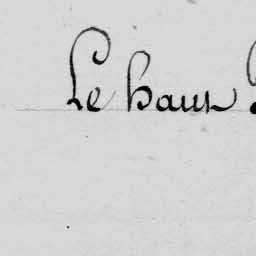 Le haut